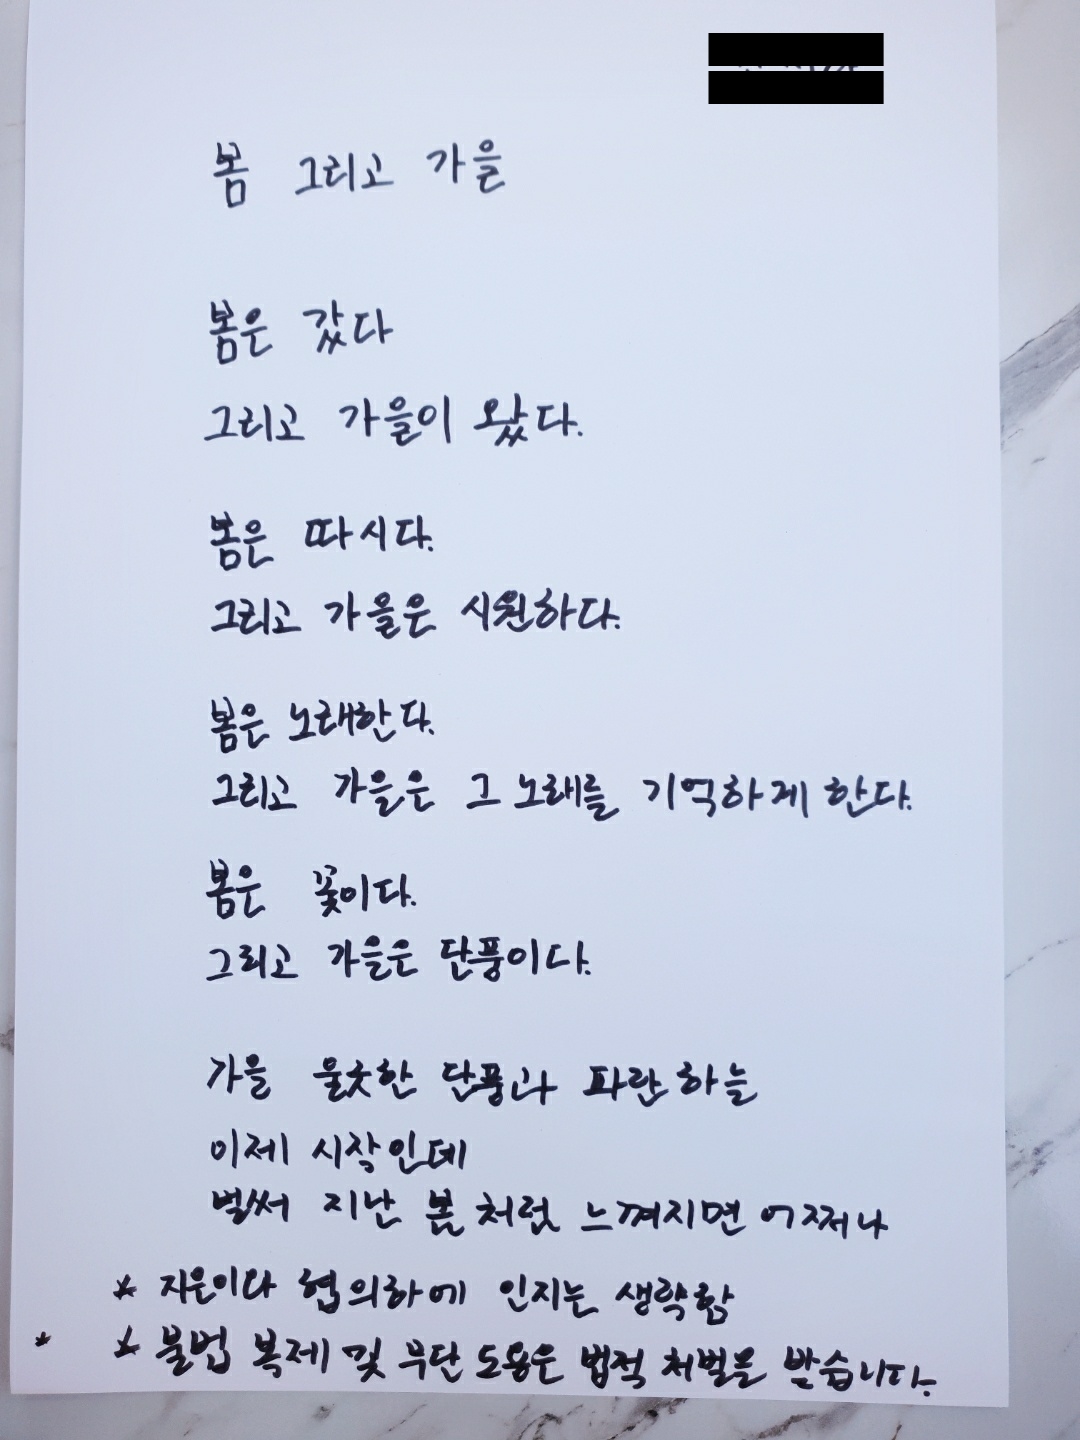 봄 그리고 가을
봄은 갔다
그리고 가을이 왔다.
봄은 따시다.
그리고 가을은 시원하다.
봄은 노래한다.
그리고 가을은 그 노래를 기억하게 한다.
봄은 꽃이다.
그리고 가을은 단풍이다.
가을 물긋한 단풍과 파란 하늘
이제 시작인데
벌써 지난 봄 처럼 느껴지면 어쩌나
* 지은이와 협의하에 인지는 생략함
* * 불법 복제 및 무단 도용은 법적 처벌을 받습니다.